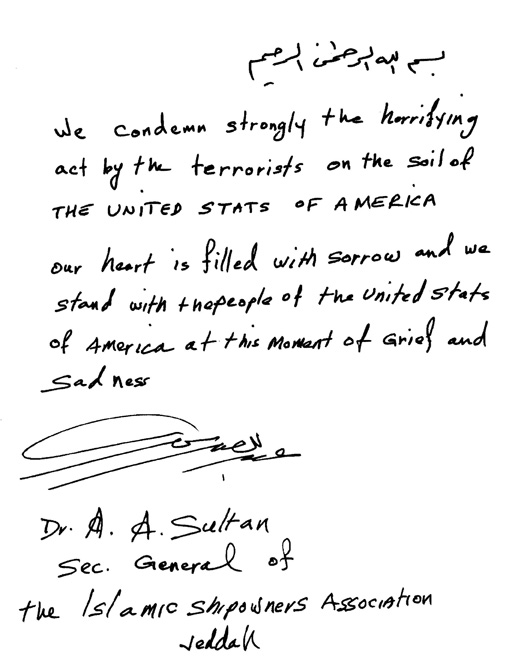 بسم الله الرحمن الرحيم
We condemn strongly the horrifying
act by the terrorists on the soil of
THE UNITED STATS OF AMERICA
our heart is filled with sorrow and we
stand with the people of the United Stats
of America at this moment of Grief and
Sadness
Dr. A. A. Sultan
Sec. General of
the Islamic Shipowners Association
Jeddah